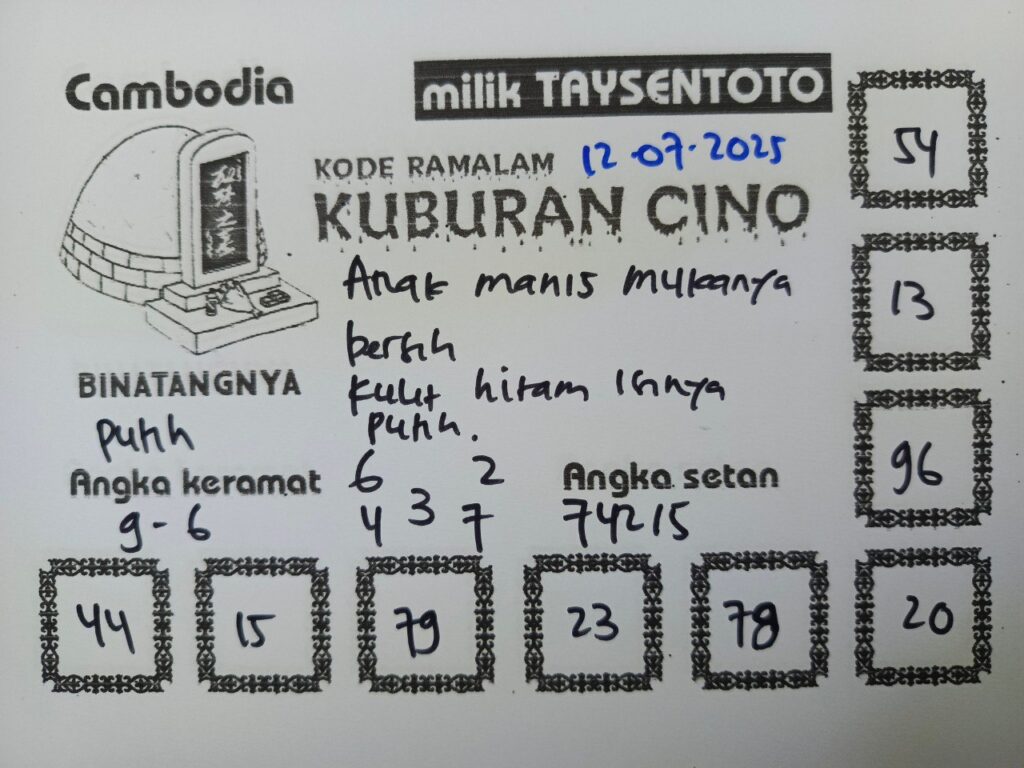 Cambodia
milik TAYSENTOTO
KODE RAMALAM 12.07.2025
KUBURAN CINO
Anak manis mukanya
bersih
kulit hitam isinya
putih.
BINATANGNYA
putih
Angka keramat
9-6
6 2
4 3 7
Angka setan
74215
54
13
96
20
44 15 79 23 78